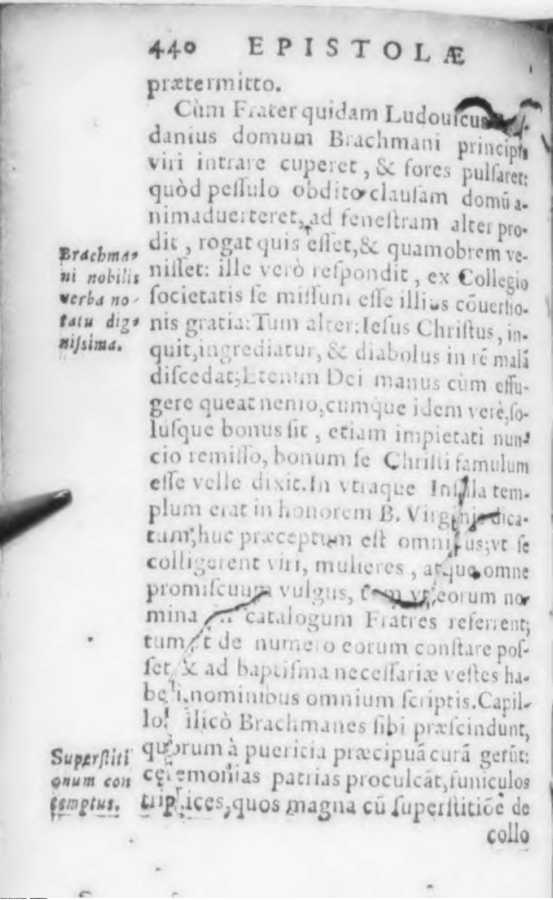 440 EPISTOLÆ
prætermitto.
Cùm Frater quidam Ludouicus
danius domum Brachmani principis
viri intrare cuperet, & fores pulſaret:
quòd peſſulo obdito clauſam domū a-
nimaduerteret, ad feneſtram alter pro-
dit, rogat quis eſſet, & quamobrem ve-
niſſet: ille verò reſpondit, ex Collegio
ſocietatis ſe miſſum eſſe illius cōuerſio-
nis gratia: Tum alter: Ieſus Chriſtus, in-
quit, ingrediatur, & diabolus in rē malā
diſcedat; Etenim Dei manus cùm effu-
gere queat nemo, cumque idem verè, ſo-
luſque bonus ſit, etiam impietati nun-
cio remiſſo, bonum ſe Chriſti famulum
eſſe velle dixit. In vtraque Inſula tem-
plum erat in honorem B. Virginis dica-
tum; huc præceptum eſt omnibus; vt ſe
colligerent viri, mulieres, atque omne
promiſcuum vulgus, eorum no-
mina catalogum Fratres referrent;
tum de numero eorum conſtare poſ-
ſet, & ad baptiſma neceſſariæ veſtes ha-
beri, nominibus omnium ſcriptis. Capil-
los ilicò Brachmanes ſibi præſcindunt,
quorum à pueritia præcipuā curā gerūt:
ceremonias patrias proculcāt, funiculos
triplices, quos magna cū ſuperſtitiōe de
collo
Brachma-
ni nobilis
verba no-
tatu dig-
niſſima.
Superſtiti
onum con
temptus.